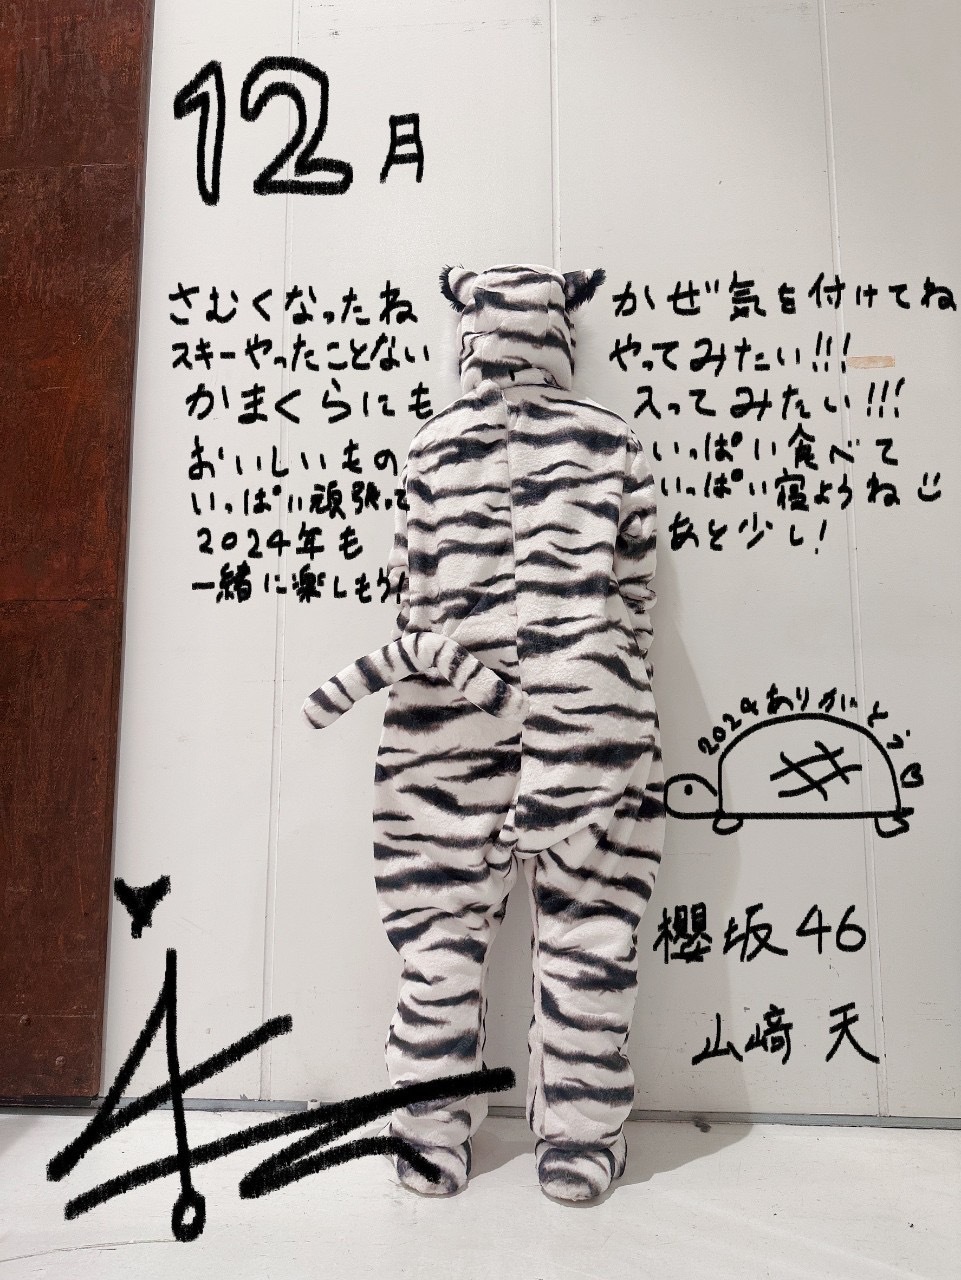 12月
さむくなったね かぜ気を付けてね
スキーやったことない やってみたい!!!
かまくらにも 入ってみたい!!!
おいしいもの いっぱい食べて
いっぱい頑張って いっぱい寝ようね
2024年も あと少し!
一緒に楽しもう!
2024ありがとう
櫻坂46
山﨑 天